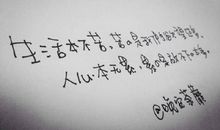 生活本不苦，苦的是我们欲望过多，
人心本无累，累的是放不下的太多。
@晚宝蒋藤